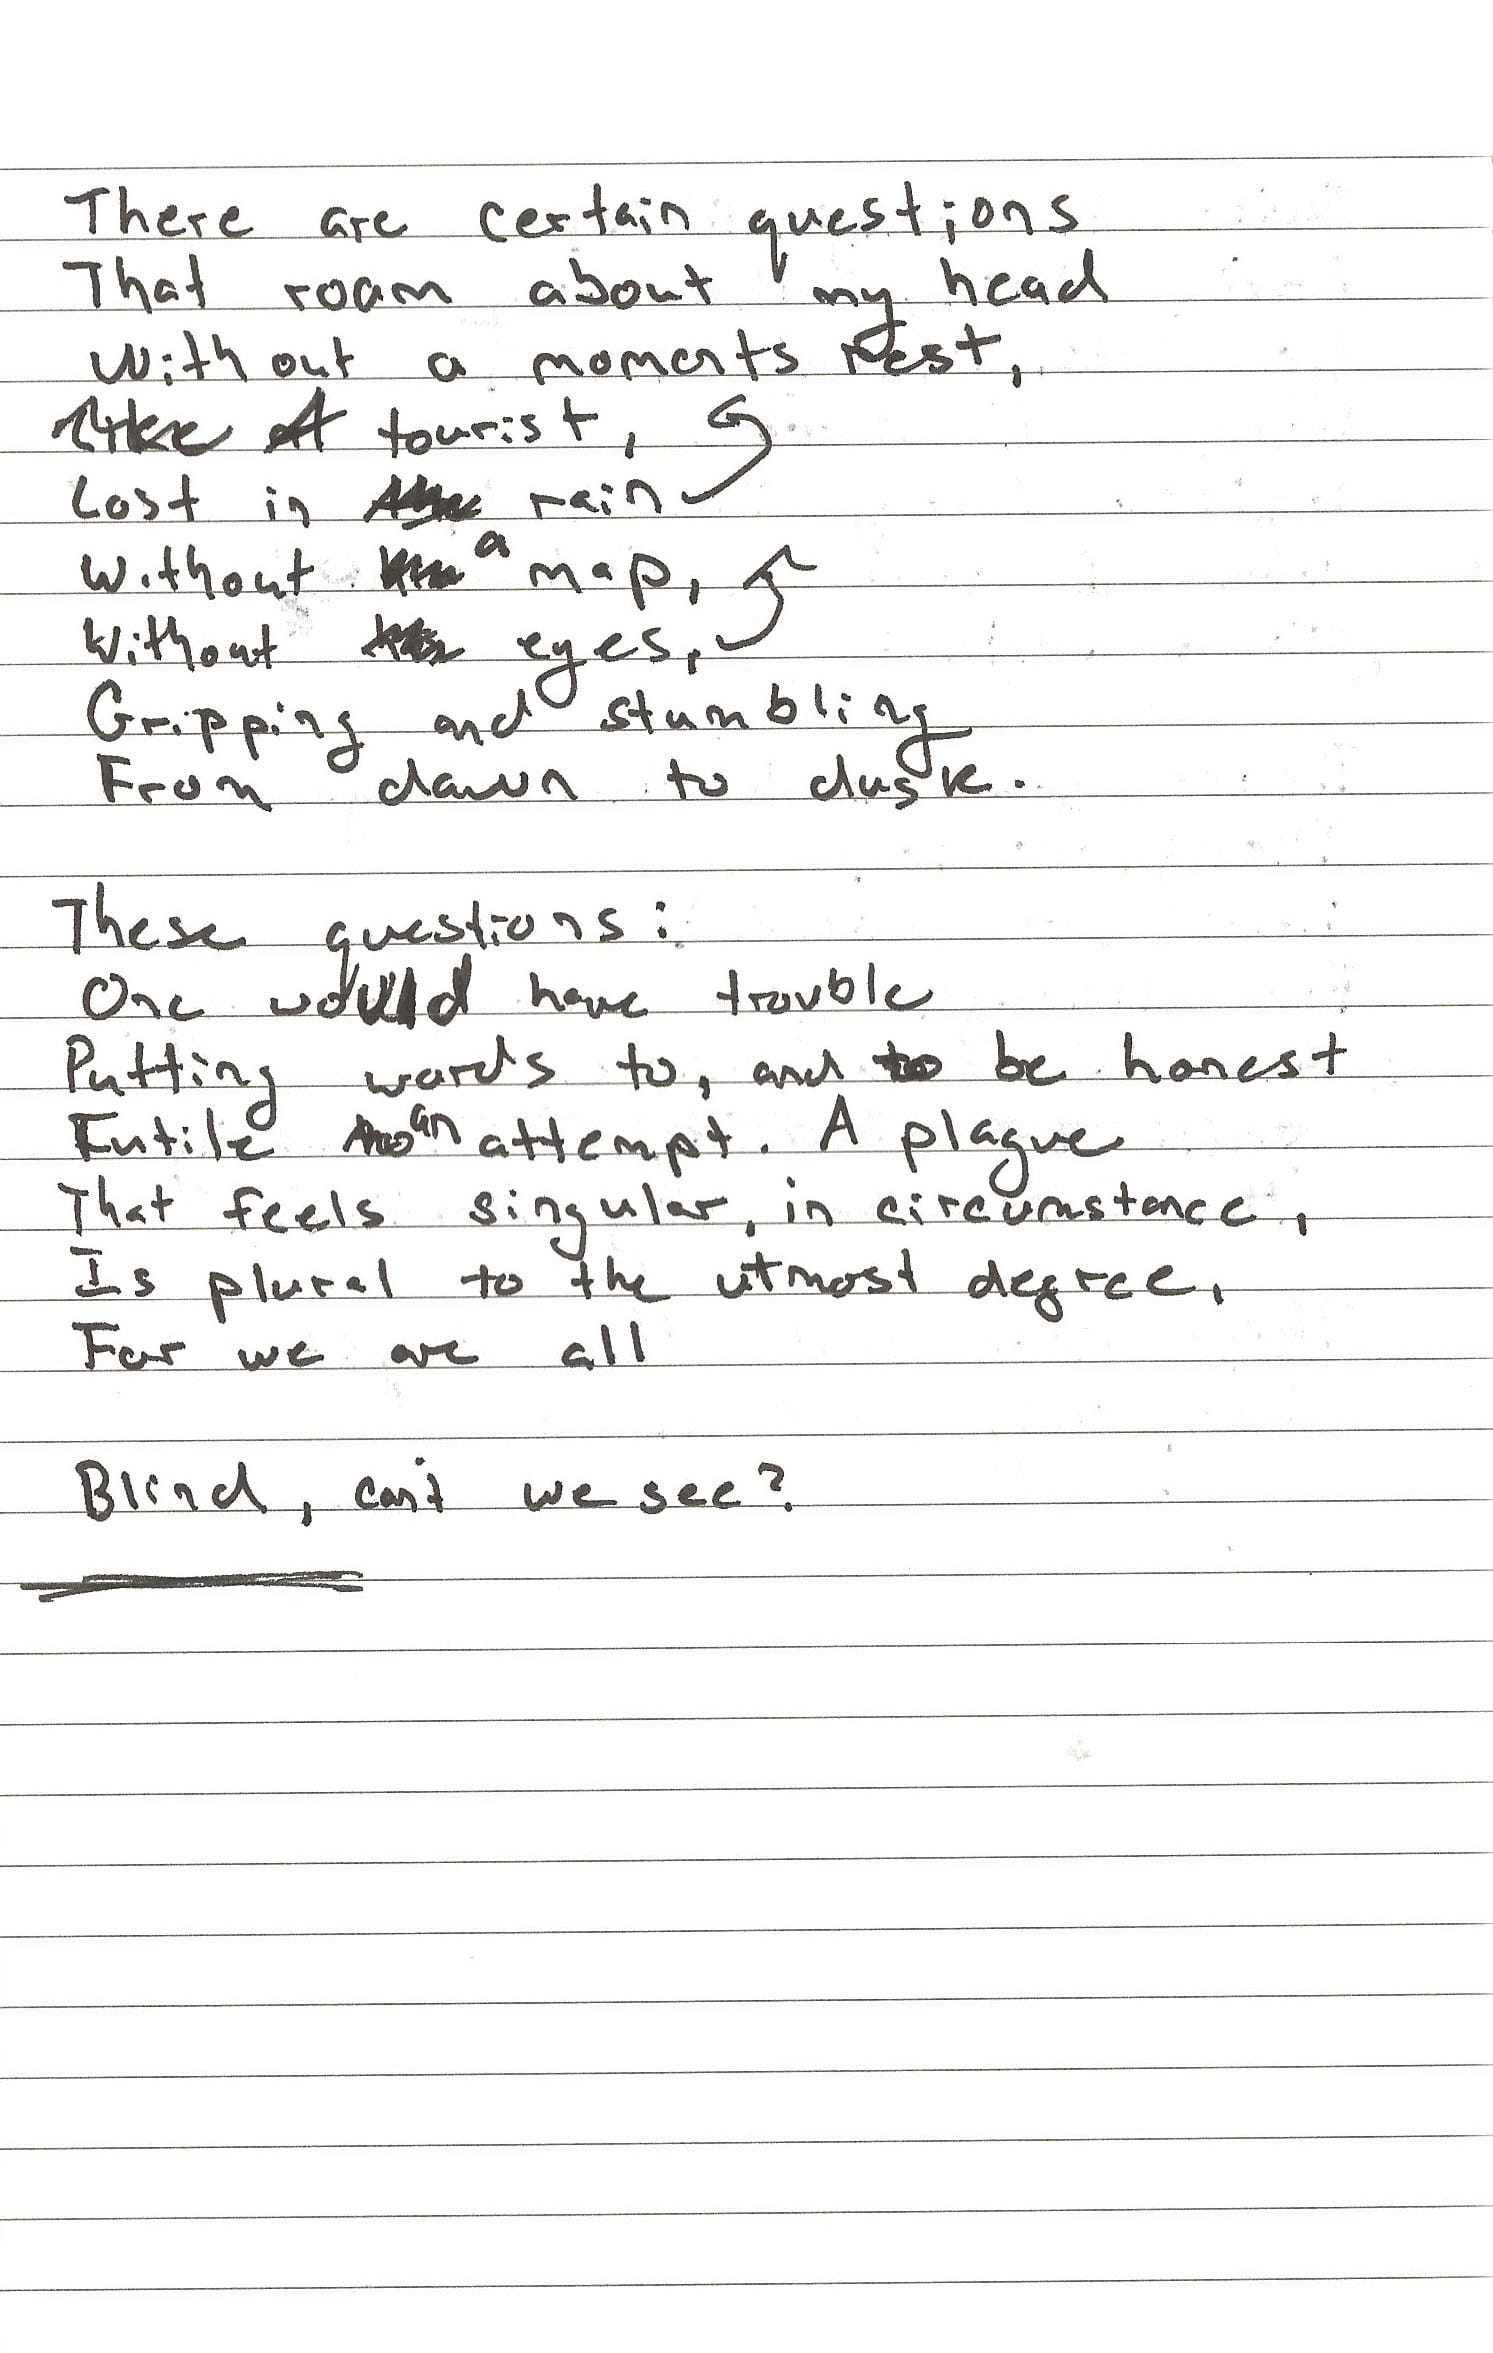 There are certain questions
That roam about my head
Without a moments rest,
Like A tourist,
Lost in rain
Without a map,
Without eyes,
Gripping and stumbling
From dawn to dusk.
These questions:
One would have trouble
Putting words to, and to be honest
Futile an attempt. A plague
That feels singular, in circumstance,
Is plural to the utmost degree,
For we are all
Blind, can't we see?